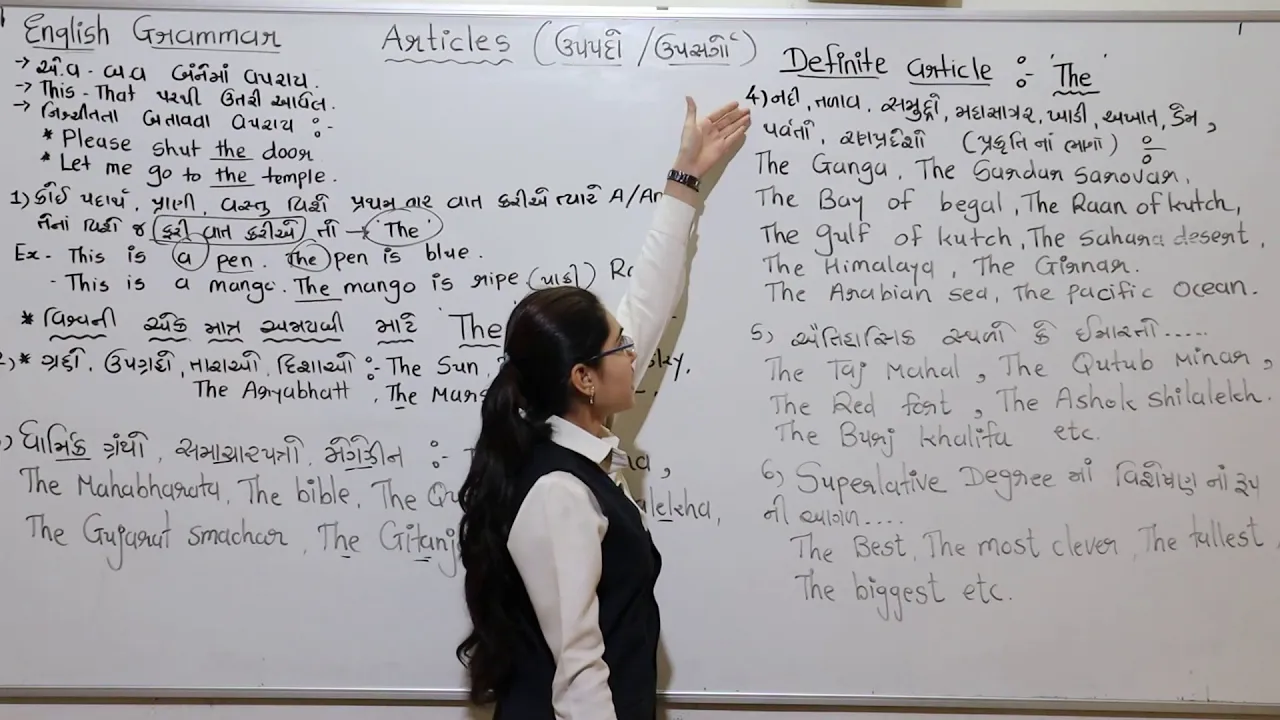 English Grammar
→ એ.વ - બ.વ બંનેમાં વપરાય.
→ This - That પરથી ઉતરી આવેલ.
→ નિશ્ચીતતા બતાવવા વપરાય :-
* Please shut the door
* Let me go to the temple.
1) કોઈ પદાર્થ, પ્રાણી, વસ્તુ વિશે પ્રથમ વાર વાત કરીએ ત્યારે A/An
તેનાં વિશે જ ફરી વાત કરીએ તો → 'The'
Ex - This is a pen. The pen is blue.
- This is a mango. The mango is ripe (પાકી)
* વિશ્વની એક માત્ર અજાયબી માટે 'The
* ગ્રહો, ઉપગ્રહો, તારાઓ, દિશાઓ :- The Sun,
The Aryabhatt, The Mars
) ધાર્મિક ગ્રંથો, સમાચારપત્રો, મેગેઝીન :-
The Mahabharata, The bible, The
The Gujarat smachar, The
Articles (ઉપપદો / ઉપસર્ગો)
Definite article :- 'The'
4) નદી, તળાવ, સમુદ્રો, મહાસાગર, ખાડી, અખાત, કેનાલ,
પર્વતો, રણપ્રદેશો (પ્રકૃતિ નાં ભાગો) :-
The Ganga, The Sardar sarovar,
The Bay of begal, The Raan of kutch,
The gulf of kutch, The Sahara desert,
The Himalaya, The Girnar.
The Arabian sea, The pacific Ocean.
5) ઐતિહાસિક સ્થળો કે ઈમારતો.....
The Taj Mahal, The Qutub Minar,
The Red fort, The Ashok shilalekh.
The Burj khalifa etc.
6) Superlative Degree માં વિશેષણ નાં રૂપ
ની આગળ....
The Best, The most clever, The tallest,
The biggest etc.